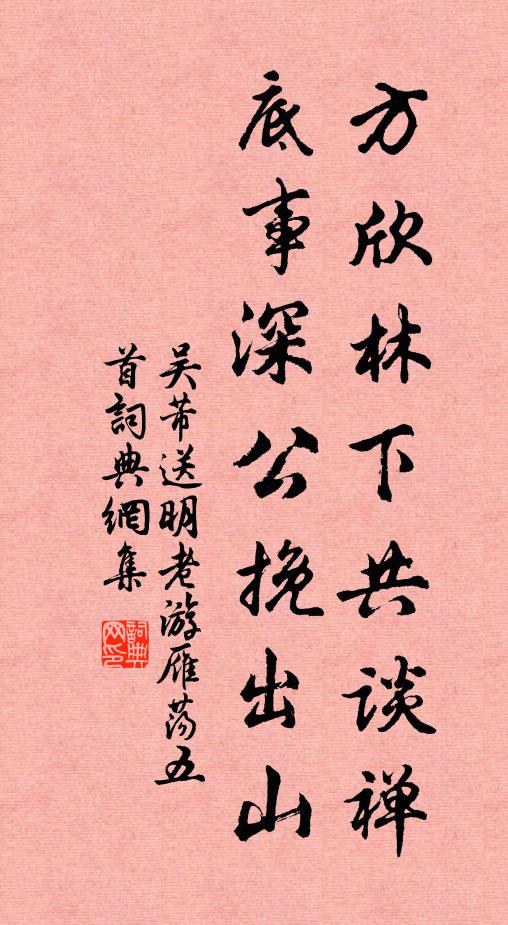 方欣林下共谈禅
底事深公挽出山
吴芾送明老游雁荡五
首詞典網集
詞典网印